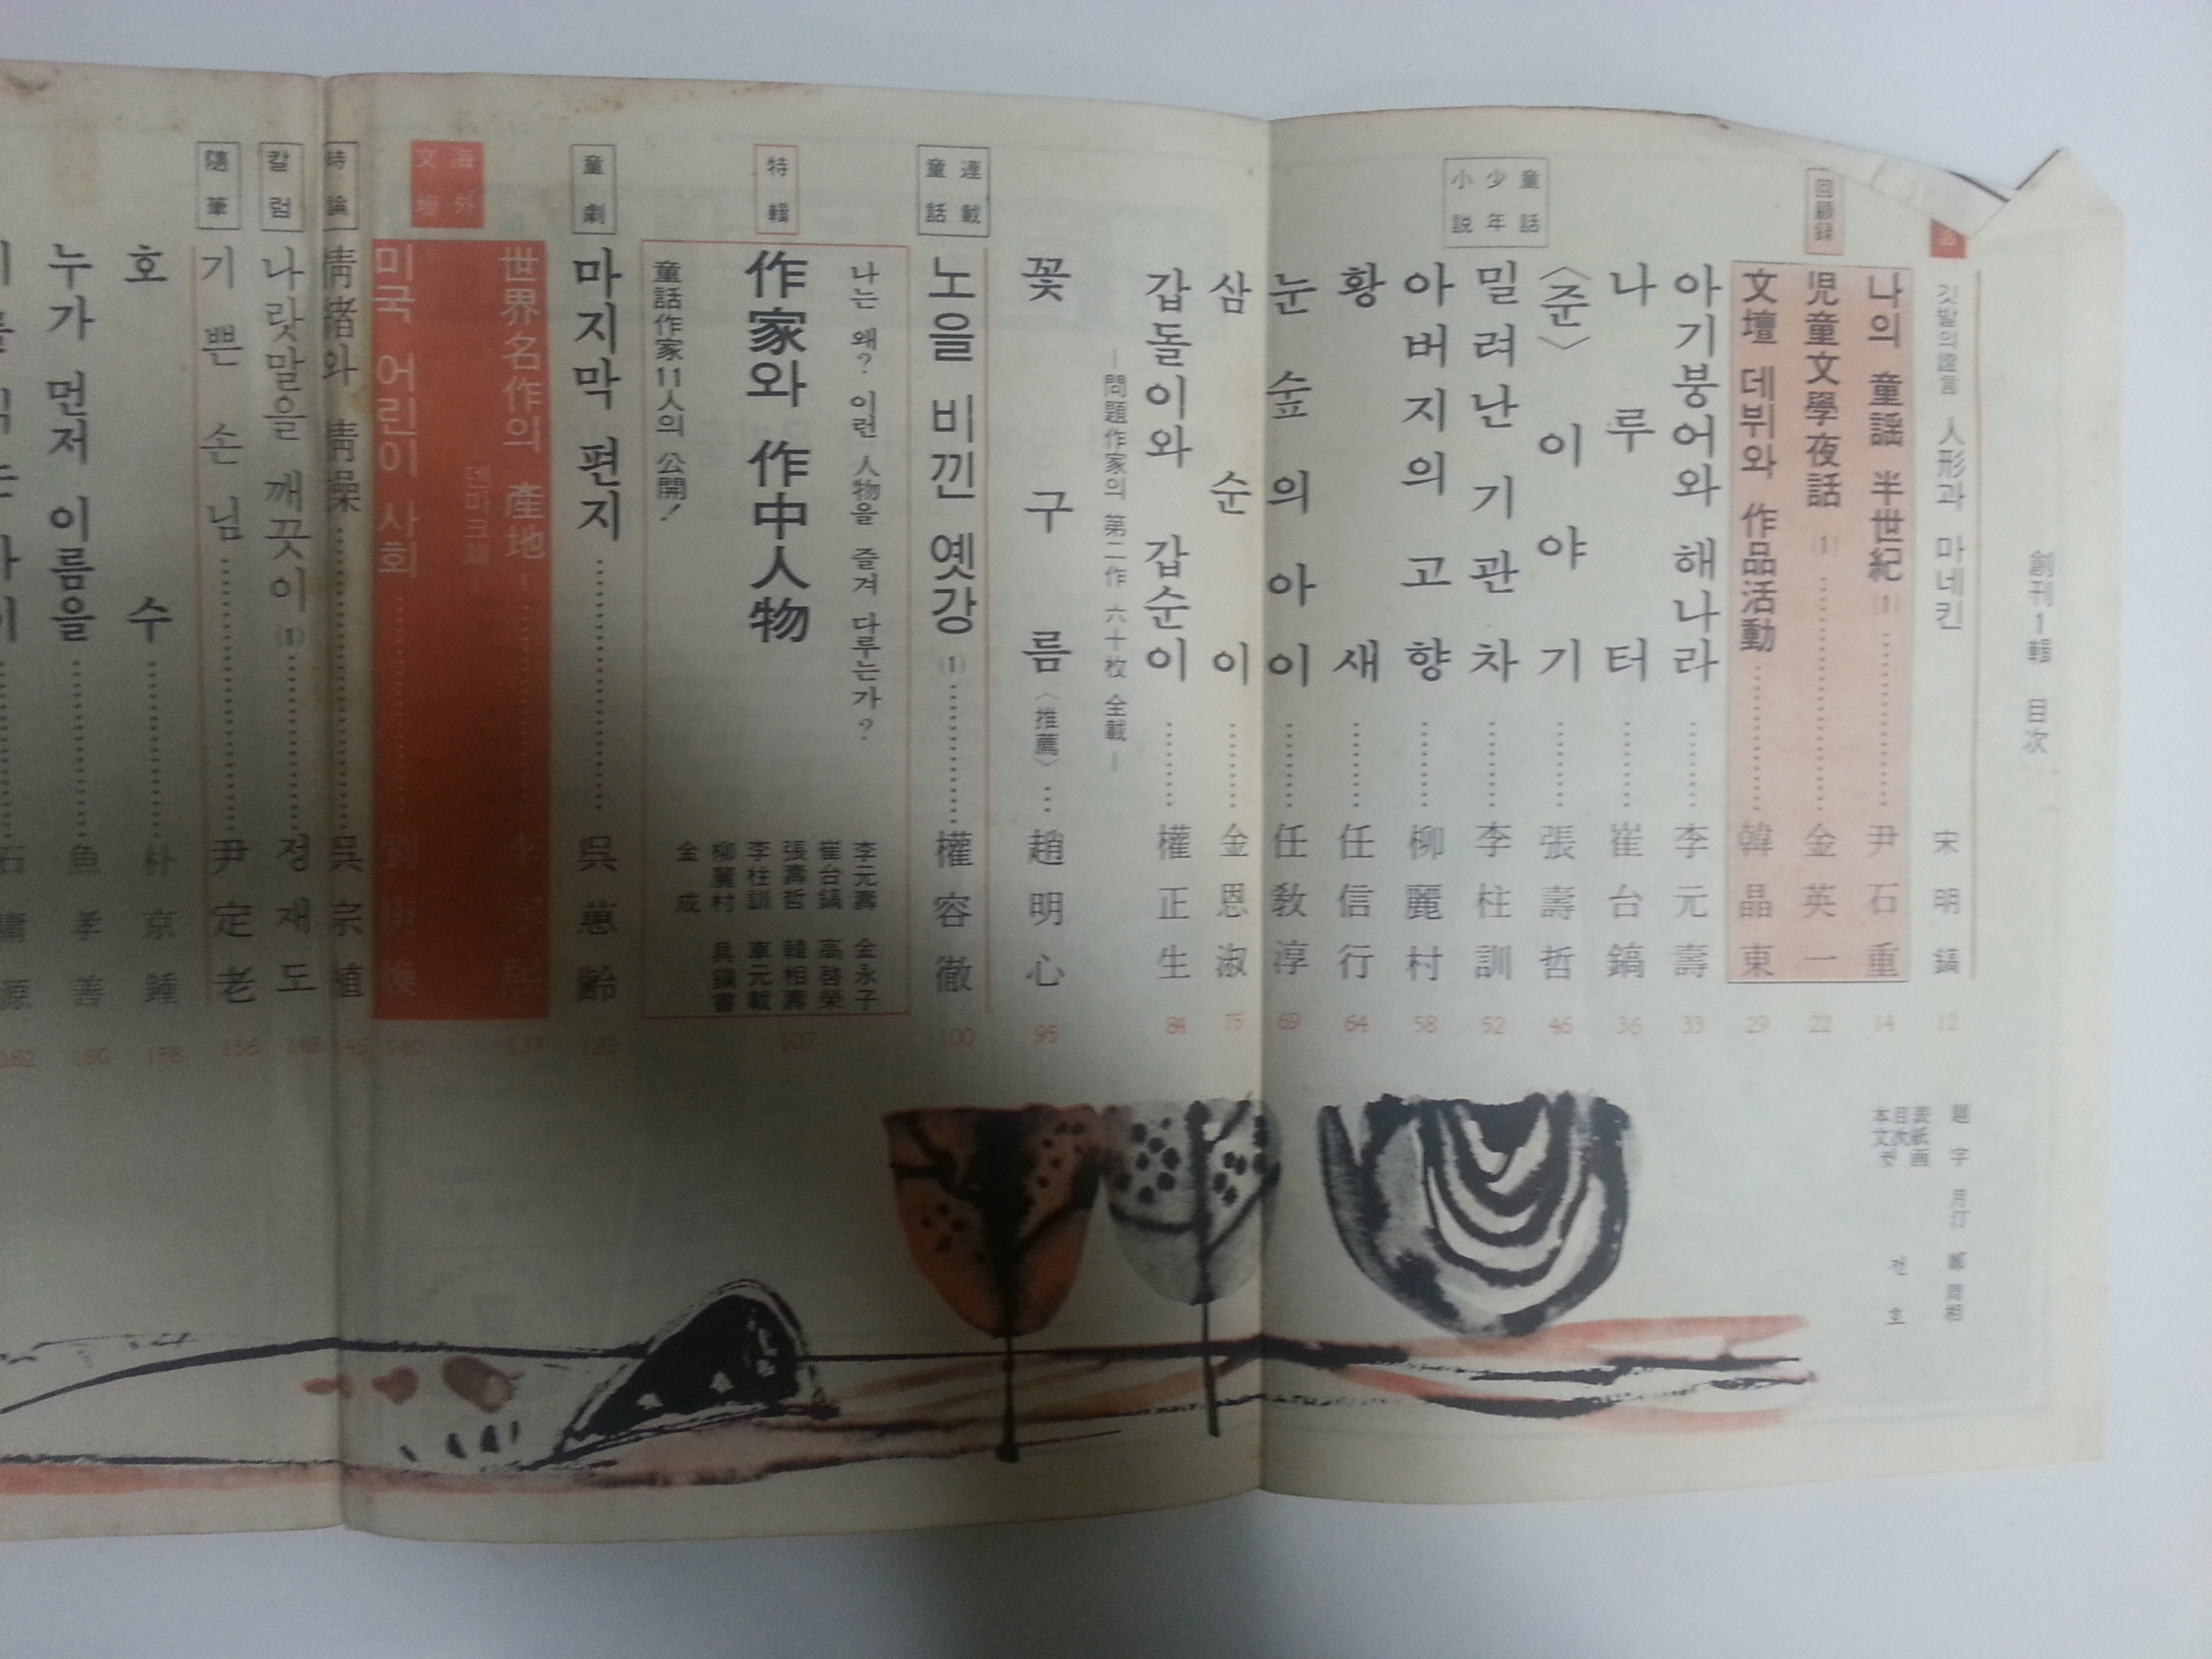 創刊1輯 目次
깃발의 證言 人形과 마네킨 宋明鎬 12
回顧録
나의 童謠 半世紀 (1) 尹石重 14
児童文學夜話 (1) 金英一 22
文壇 데뷔와 作品活動 韓晶東 29
童話 少年 小説
아기붕어와 해나라 李元壽 33
나루터 崔台鎬 36
〈준〉이야기 張壽哲 46
밀려난 기관차 李柱訓 52
아버지의 고향 柳麗村 58
황새 任信行 64
눈숲의 아이 任敎淳 69
삼순이 金恩淑 75
갑돌이와 갑순이 權正生 84
―問題作家의 第二作 六十枚 全載―
꽃구름〈推薦〉 趙明心 95
連載 童話
노을 비낀 옛강 (1) 權容徹 100
特輯
나는 왜? 이런 人物을 즐겨 다루는가?
作家와 作中人物
童話作家 11人의 公開!
李元壽 金永子
崔台鎬 高啓榮
張壽哲 韓相壽
李柱訓 車元載
柳麗村 吳鎭書
金成
107
童劇
마지막 편지 吳蕙齡 120
海外 文壇
世界名作의 產地
―덴마크篇―
미국 어린이 사회 140
時論
情緖와 情操 吳宗植 145
칼럼
나랏말을 깨끗이 (1) 정재도 148
隨筆
기쁜 손님 尹定老 156
호수 朴京鍾 158
누가 먼저 이름을 魚孝善 160
162
題字 月汀 鄭周相
表紙画
目次
本文컷
전호